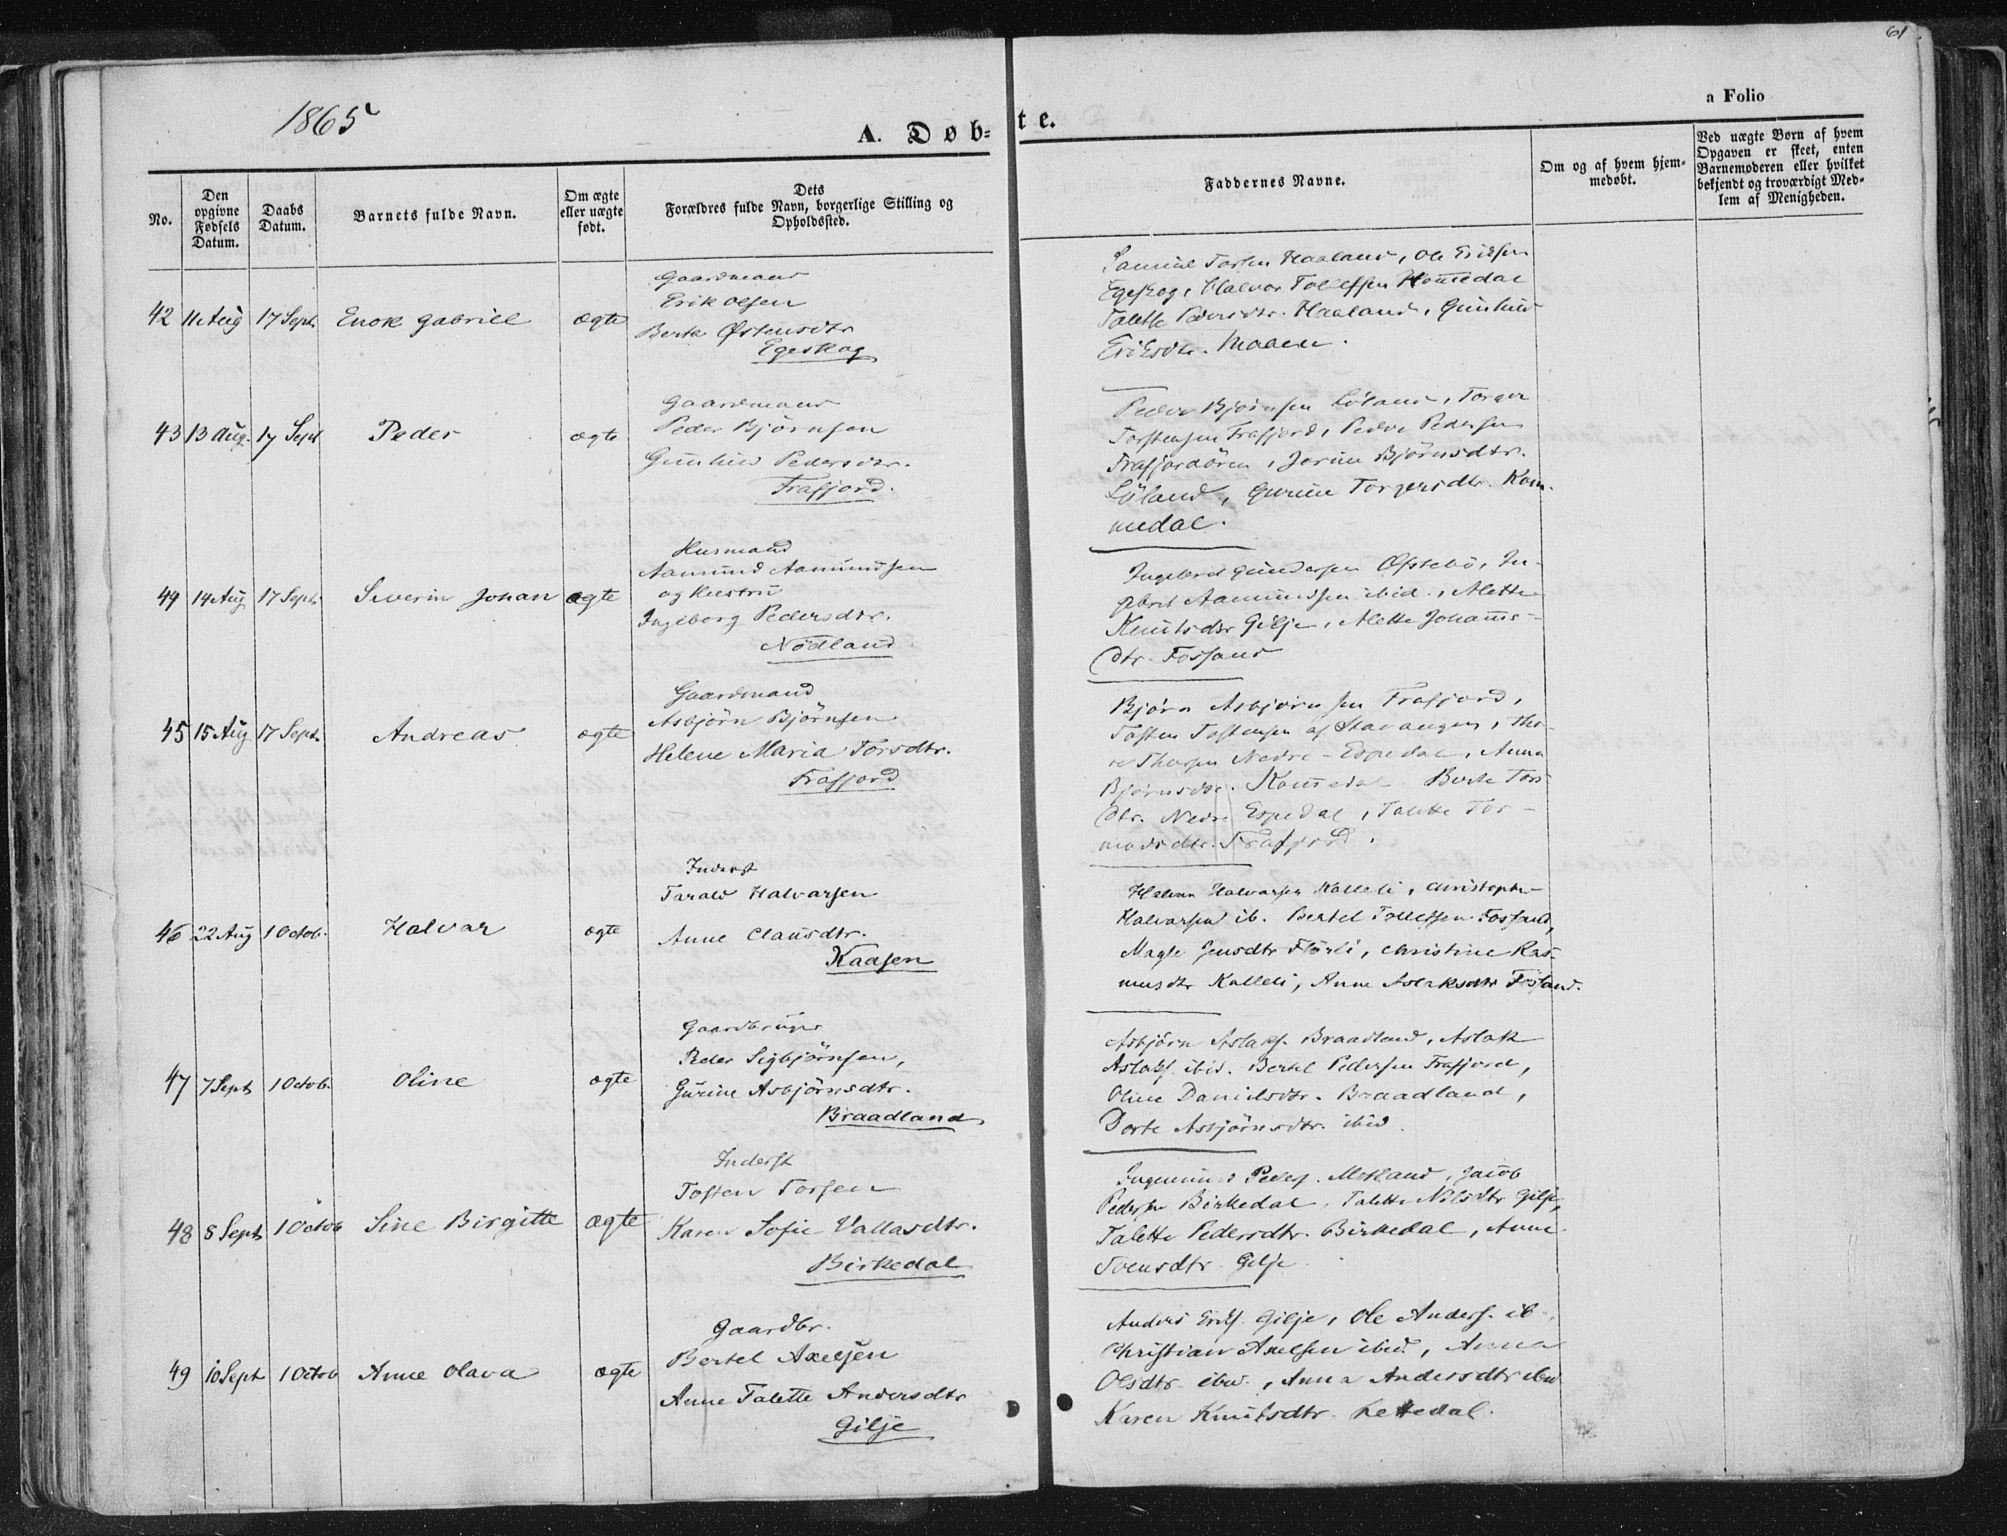 61
a Folio
1865
A. Døb-
te.
No.
Den
opgivne
Fødsels
Datum.
Daabs
Datum.
Barnets fulde Navn.
Om ægte
eller uægte
født.
Dets
Forældres fulde Navn, borgerlige Stilling og
Opholdssted.
Faddernes Navne.
Om og af hvem hjem-
medøbt.
Ved uægte Børn af hvem
Opgaven er skeet, enten
Barnemoderen eller hvilket
bekjendt og troværdigt Med-
lem af Menigheden.
42 11 Aug 17 Sept. Enok Gabriel ægte
Gaardmand
Erik Olsen
Berte Østensdtr
Egeskog
Haaland, Ole Eriksen
Egeskog, Halvor Tollefsen
Talette Pedersdtr. Haaland, Gunhild
Eriksdtr.
43 13 Aug. 17 Sept Peder ægte
Gaardmand
Peder Bjørnsen
Gunhild Pedersdtr.
Frafjord.
Peder Bjørnsen Løland, Torger
Torstensen Frafjord, Peder Pedersen
Frafjordøren, Jorine Bjørnsdtr.
Løland, Gurine Torgersdtr. Kom-
medal.
44 14 Aug 17 Sept. Severin Johan ægte
Husmand
Aamund Aamundsen
og Hustru
Ingeborg Pedersdtr.
Nødland
Ingebret Gundersen Østebø, In-
gebret Aamundsen ibid., Alette
Knutsdtr Gilje, Alette Johanns-
dtr. Fossand
45 15 Aug 17 Sept. Andreas ægte
Gaardmand
Asbjørn Bjørnsen
Helene Maria Torsdtr.
Frafjord
Bjørn Asbjørnsen Frafjord,
Tosten Tostensen af Stavanger, Tho-
re Thorsen Nedre-Espedal, Anna
Bjørnsdtr. Kommedal Berte Tors-
dtr. Nedre Espedal, Talette Tor-
modsdtr. Frafjord.
46 22 Aug 1 Octob. Halvar ægte
Inderst
Tarald Halvarsen
Anne Clausdtr.
Kaasen
Halvar Halvarsen Kalleli, Christopher
Halvarsen ib. Bertel Tollefsen Fossand,
Magle Jensdtr Flørli, Christine Ras-
musdtr Kalleli, Anne Fossand.
47 7 Sept 1 Octob. Oline ægte
Gaardbruger
Peder Sigbjørnsen,
Gurine Asbjørnsdtr.
Braadland
Asbjørn Aslaks. Braadland, Aslak
Aslaks. ibid. Bertel Pedersen Frafjord,
Oline Danielsdtr. Braadland,
Dorte Asbjørnsdtr. ibid.
48 8 Sept 1 Octob Sine Birgitte ægte
Inderst
Tosten Torsen
Karen Sofie Vallasdtr.
Birkedal
Ingemund Peders. Mekland, Jacob
Pedersen Birkedal, Talette Nilsdtr Gilje,
Talette Pedersdtr. Birkedal, Anne
Svensdtr Gilje.
49 10 Sept 1 Octob Anne Olava ægte
Gaardbr.
Bertel Axelsen
Anne Talette Andersdtr
Gilje
Anders Eriks. Gilje, Ole Anders. ib.
Christian Axelsen ibid, Anna
Olsdtr ibid., Anna Andersdtr ibid
Karen Knutsdtr.